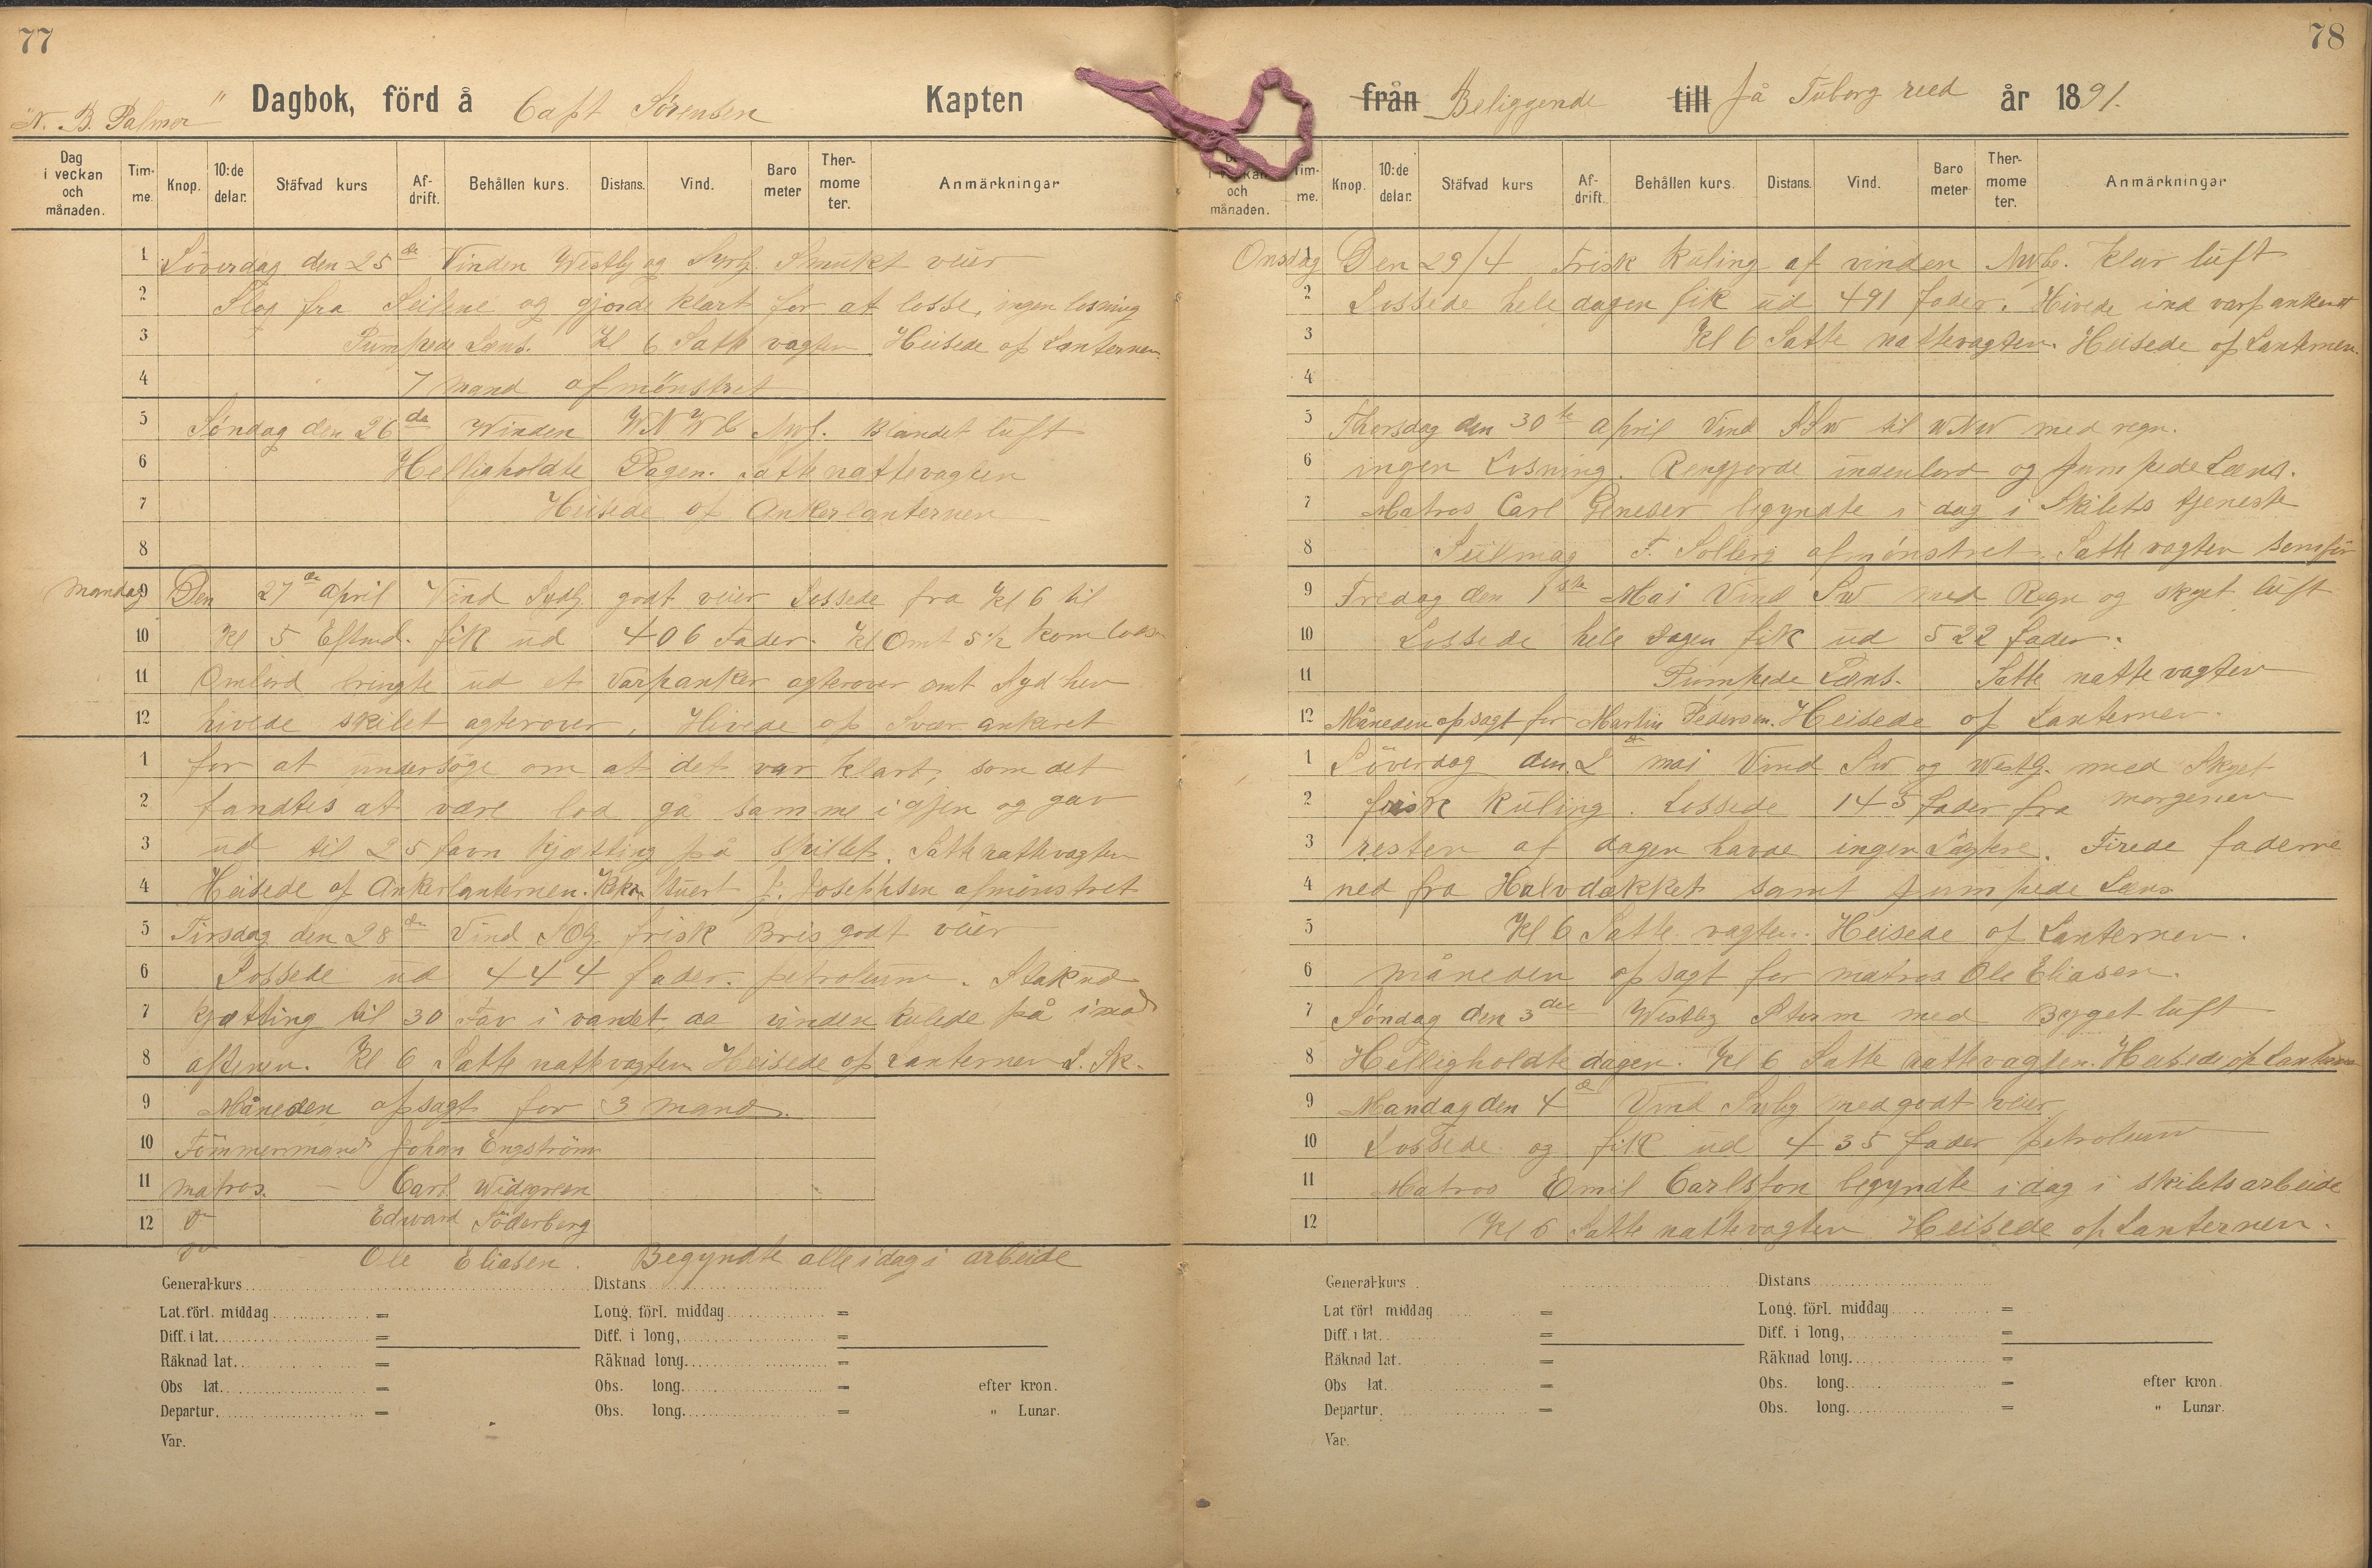 77
"N. B. Palmer" Dagbok, förd å Capt Sörensen Kapten
Dag i veckan och månaden. Tim-me. Knop. 10:de delar. Stäfvad kurs Af-drift. Behållen kurs. Distans. Vind. Baro meter Ther-mome ter. Anmärkningar
1 Löverdag den 25de Vinden Westlg og Sydlg Smukt veir
2 Slog fra Seilene og gjorde klart for at losse, ingen losning
3 Pumpede Læns. Kl 6 Satte vagten Heisede op Lanternen
4 7 mand afmönstret
5 Søndag den 26de Winden WNW Blandet luft
6 Helligholdte Dagen. Satte nattevagten
7 Heisede op Ankerlanternen
8
mandag 9 Den 27de April Vind Sydlg godt veir Lossede fra Kl 6 til
10 Kl 5 Eftmd. fik ud 406 Fader. Kl omt 5½ kom lods
11 Ombord bringte ud et Varpanker agterover omt Syd hen
12 hivede skibet agterover, Hivede op Svær ankeret
1 for at undersöge om at det var klart, som det
2 fandtes at være lod gå samme igjen og gav
3 ud til 25 favn kjætting på skibet. Satte nattevagten
4 Heisede op Ankerlanternen. Stuert J. Josephsen afmönstret
5 Tirsdag den 28de Vind SOlg frisk Bris godt veir
6 Lossede ud 444 fader. petroleum. Stak ud
7 kjætting til 30 Fav i vandet, da vinden kulede på imod
8 aftenen. Kl 6 Satte nattevagten Heisede op Lanternen
9 Måneden opsagt for 3 mand.
10 Tömmermand Johan Engström
11 matros. — Carl Widegreen
12 do Edward Söderberg
do Ole Eliasen. Begyndte alle i dag i arbeide
General-kurs Distans
Lat. förl. middag = Long. förl. middag =
Diff. i lat. = Diff. i long, =
Räknad lat. = Räknad long. =
Obs lat. = Obs. long. = efter kron.
Departur. = Obs. long. = " Lunar.
Var.
78
från Beliggende till på Tuborg reed år 1891.
och månaden. Tim-me. Knop. 10:de delar. Stäfvad kurs Af-drift. Behållen kurs. Distans. Vind. Baro meter Ther-mome ter. Anmärkningar
Onsdag 1 Den 29/4 Frisk Kuling af vinden klar luft
2 Lossede hele dagen fik ud 491 fader. Hivede ind varpankeret
3 Kl 6 Satte nattevagten. Heisede op Lanternen
4
5 Thorsdag den 30te April Vind SSW til WNW med regn.
6 ingen Losning. Rengjorde indenbord og pumpede Læns.
7 Matros Carl Geneser begyndte i dag i Skibets tjeneste
8 Seilmag F. Solberg afmønstret. Satte vagten som før
9 Fredag den 1ste Mai Vind SW med Regn og skyet luft
10 Lossede hele dagen fik ud 522 fader.
11 Pumpede Læns. Satte nattevagten
12 Måneden opsagt for Martin Pedersen. Heisede op Lanternen.
1 Löverdag den 2de mai Vind SW og Westlg. med Skyet
2 frisk Kuling. Lossede 145 fader fra morgenen
3 resten af dagen havde ingen Lægtere. Firede faderne
4 ned fra Halvdækket samt pumpede Læns
5 Kl 6 Satte vagten. Heisede op Lanternen.
6 måneden opsagt for matros Ole Eliasen.
7 Søndag den 3die Westlg Storm med Byget luft
8 Helligholdte dagen. Kl 6 Satte nattevagten. Heisede op Lanternen
9 Mandag den 4de Vind Sydlg med godt veir
10 Lossede og fik ud 435 fader petroleum
11 Matros Emil Carlsson begyndte i dag i skibets arbeide
12 Kl 6 Satte nattevagten Heisede op Lanternen.
General-kurs Distans
Lat förl middag = Long. förl. middag =
Diff. i lat. = Diff. i long, =
Räknad lat. = Räknad long. =
Obs lat. = Obs. long. = efter kron.
Departur. = Obs. long. = " Lunar.
Var.